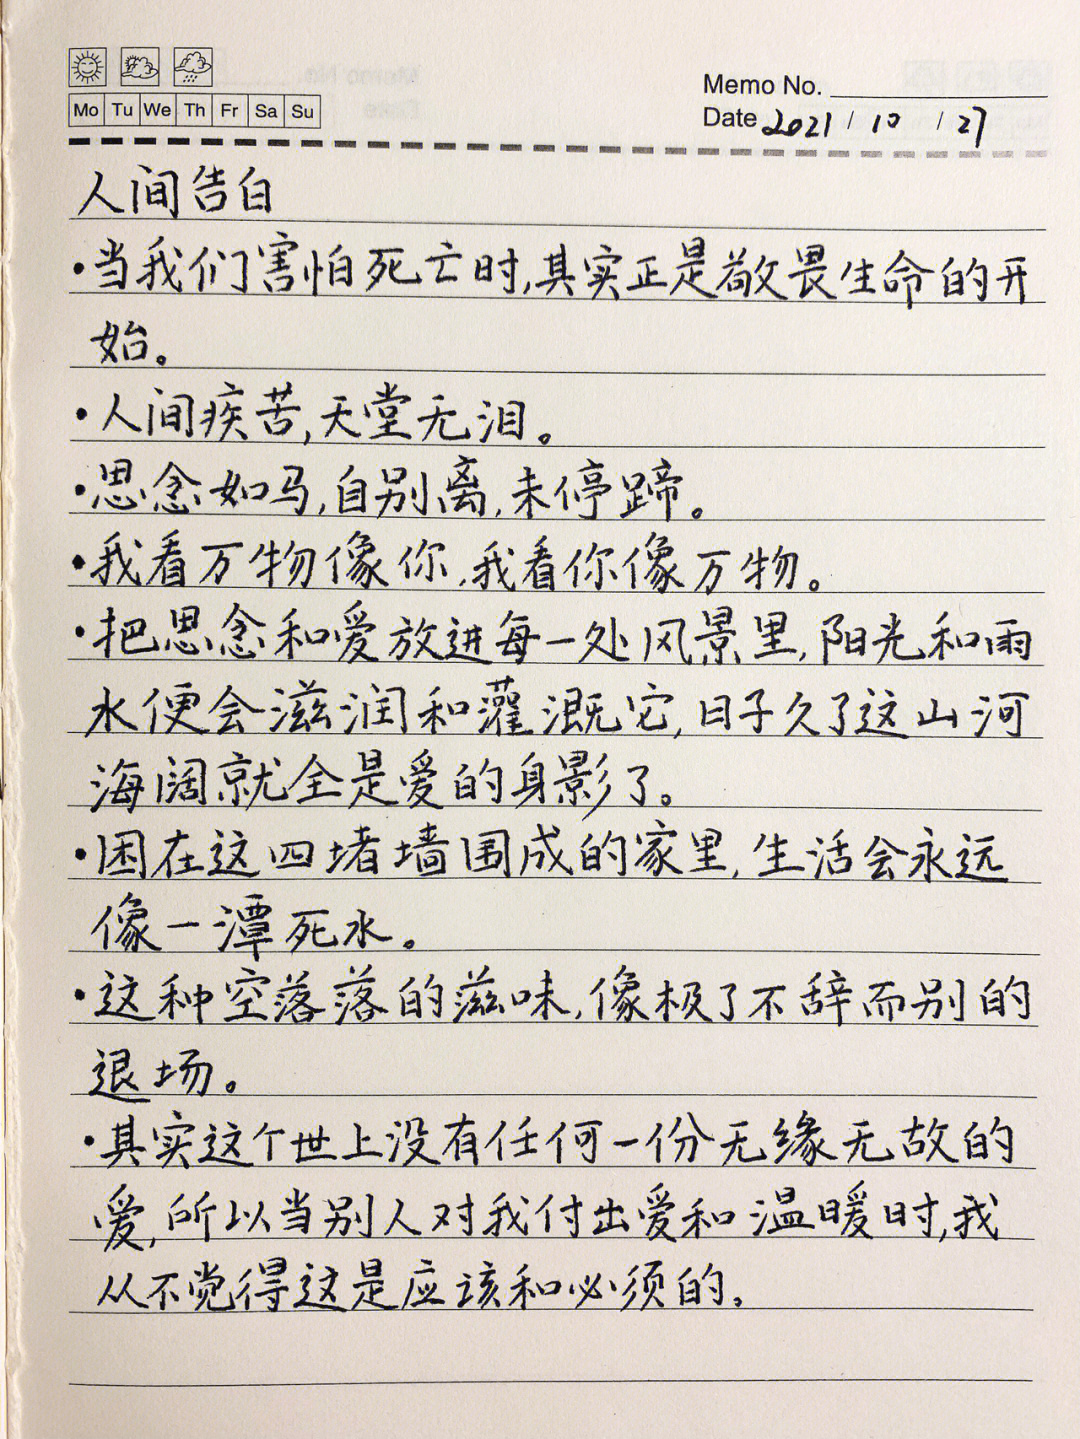 Memo No.
Mo Tu We Th Fr Sa Su
Date 2021 / 10 / 27
人间告白
·当我们害怕死亡时,其实正是敬畏生命的开
始。
·人间疾苦,天堂无泪。
·思念如马,自别离,未停蹄。
·我看万物像你,我看你像万物。
·把思念和爱放进每一处风景里,阳光和雨
水便会滋润和灌溉它,日子久了这山河
海阔就全是爱的身影了。
·困在这四堵墙围成的家里,生活会永远
像一潭死水。
·这种空落落的滋味,像极了不辞而别的
退场。
·其实这个世上没有任何一份无缘无故的
爱,所以当别人对我付出爱和温暖时,我
从不觉得这是应该和必须的。